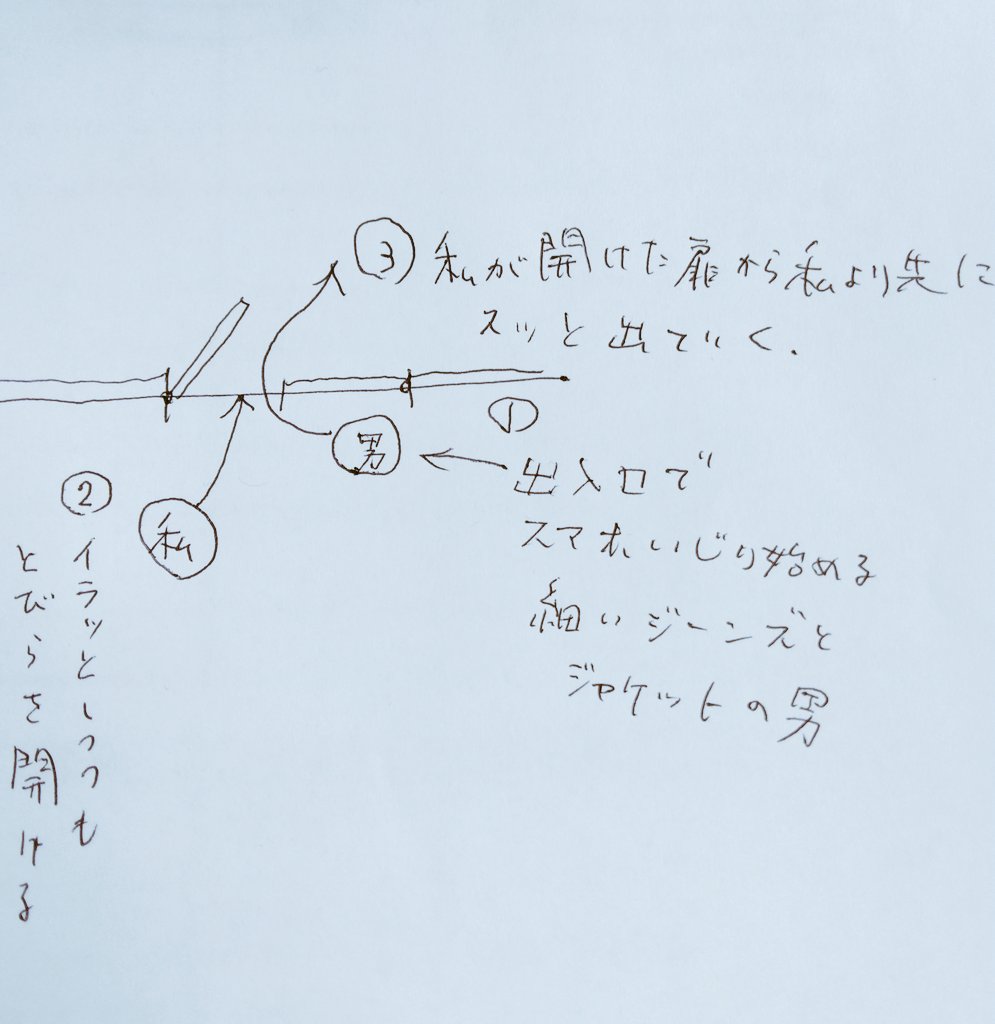 ①
出入口で
スマホいじり始める
細いジーンズと
ジャケットの男
男
②
イラッとしつつも
とびらを開ける
私
③
私が開けた扉から私より先に
スッと出ていく.